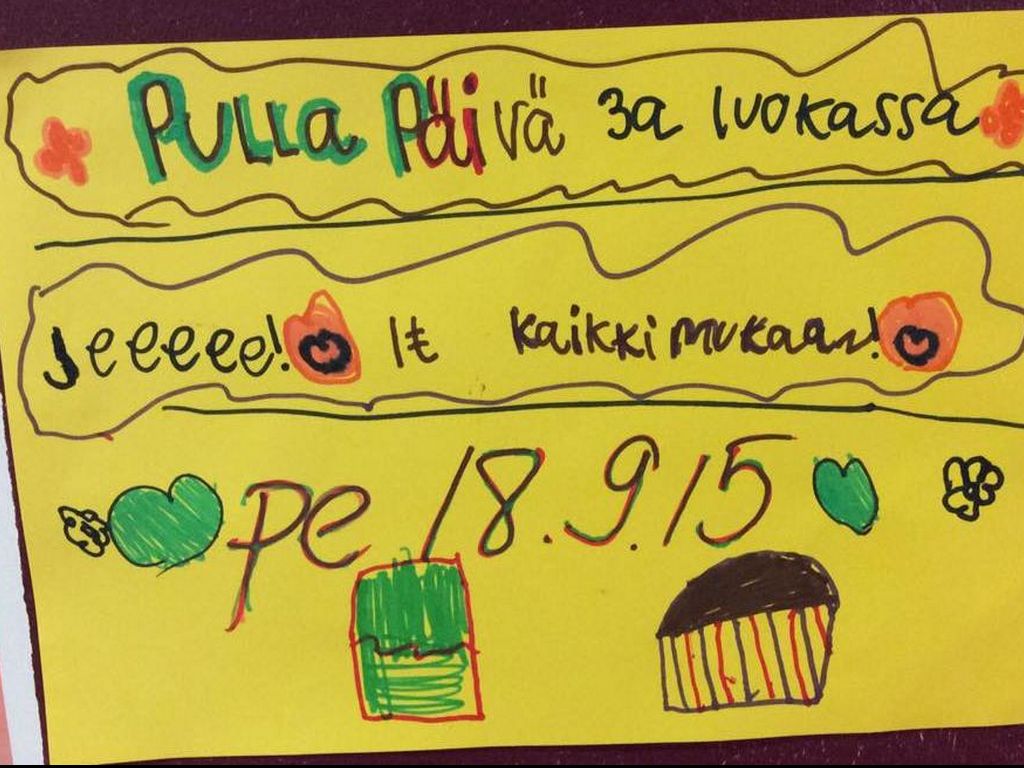 PULLA Päivä 3a luokassa
Jeeeee! It kaikki mukaan!
pe 18.9.15